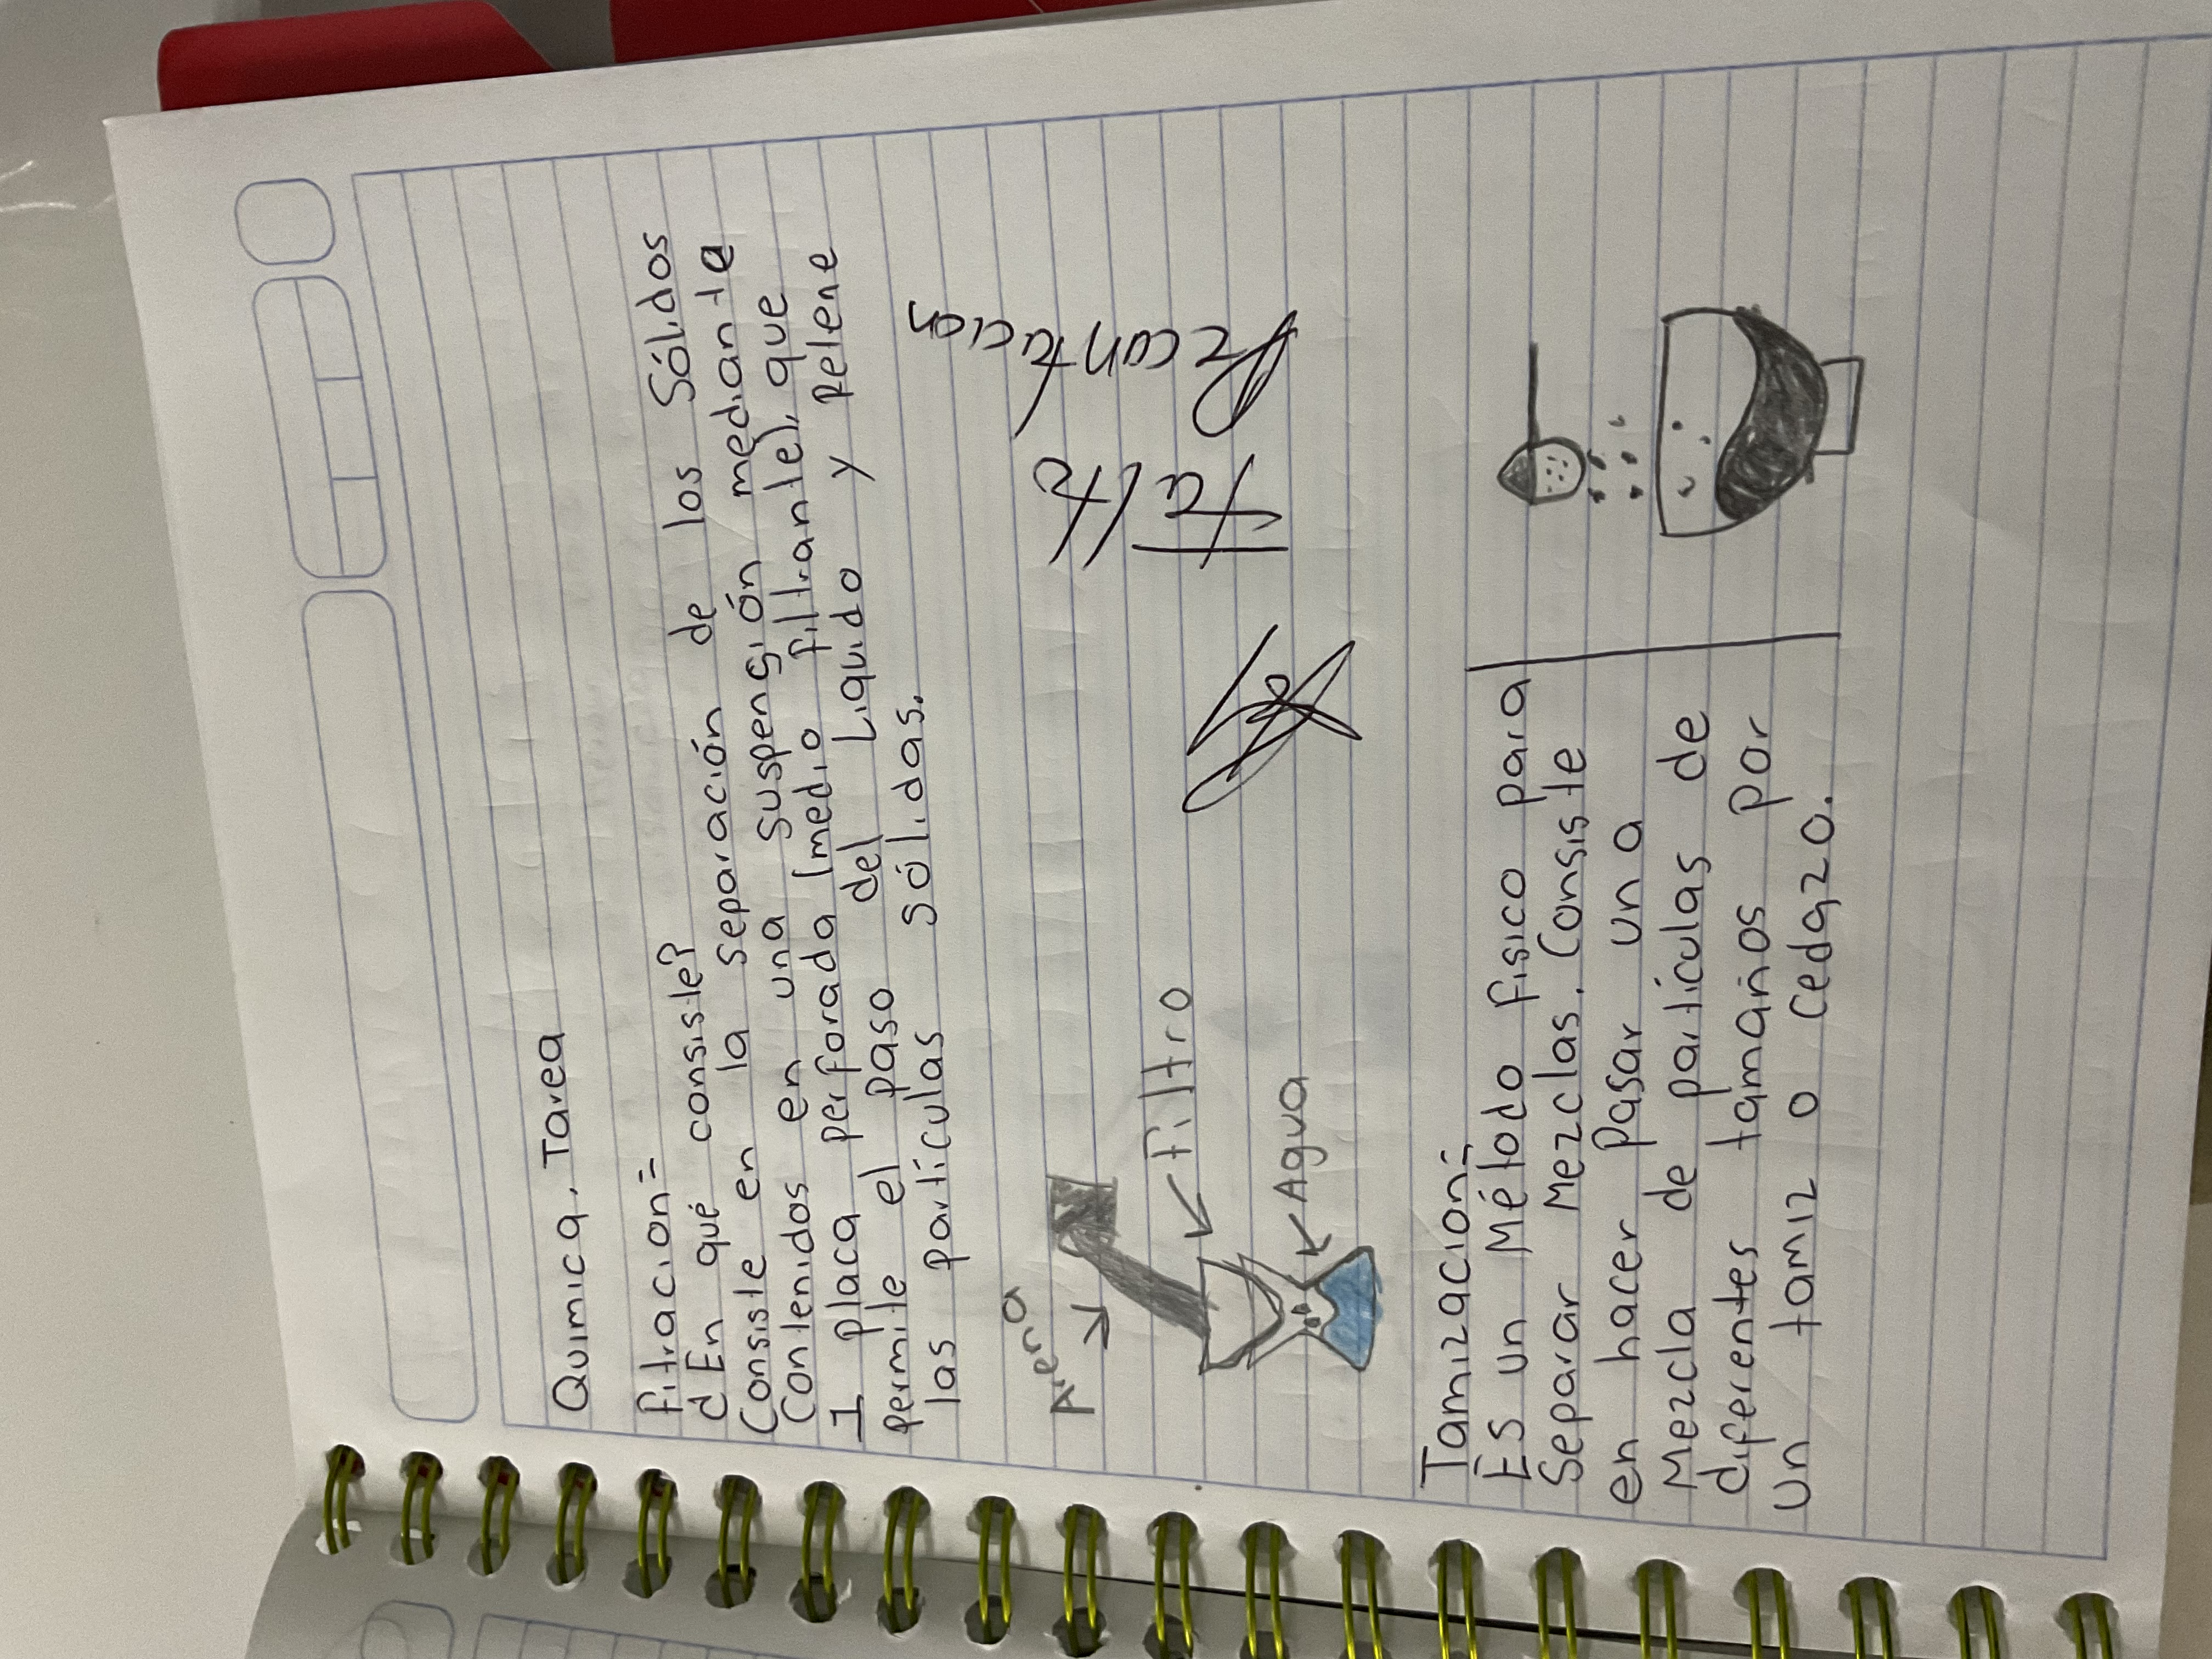 Quimica. Tarea
Fitracion=
d En qué consiste?
Consiste en la separación de los Sólidos
Contenidos en una suspensión mediante
1 placa perforada (medio filtrante), que
permite el paso del Liquido y Relene
las partículas sólidas.
Arena
Filtro
Agua
Falta
Decantación
Tamización=
Es un Método físico para
Separar Mezclas. Consiste
en hacer pasar una
Mezcla de partículas de
diferentes tamaños por
un tamiz o Cedazo.